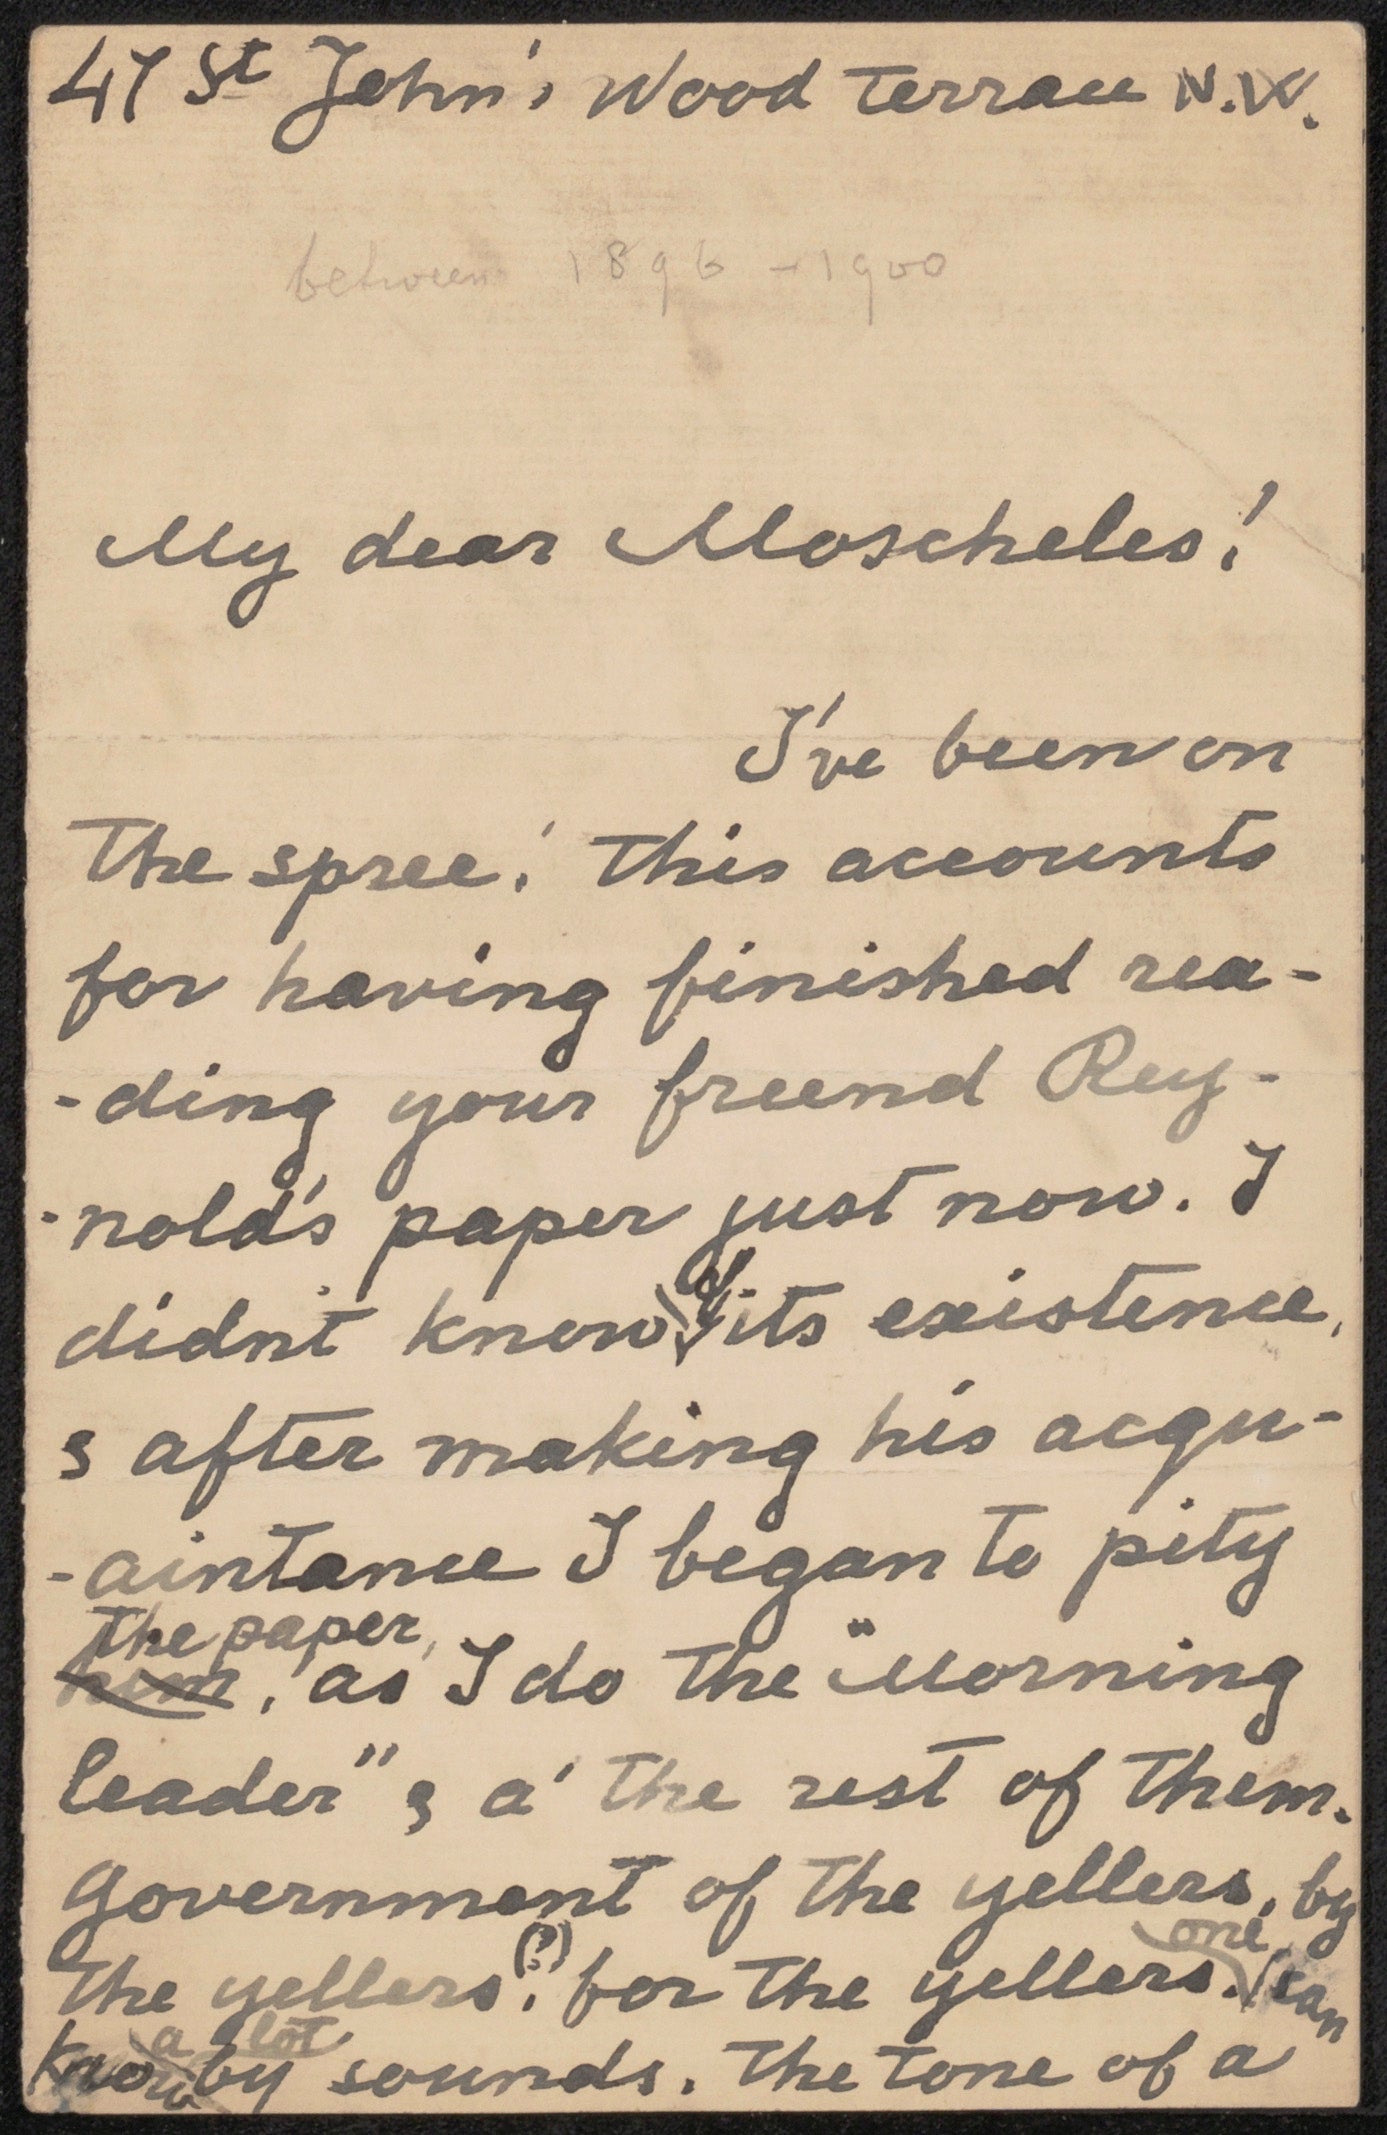 47 St John's Wood terrace N.W.
between 1896 - 1900
My dear Moscheles!
I've been on
the spree! this accounts
for having finished rea-
-ding your freend Rey-
-nold's paper just now. I
didn't know of its existence,
& after making his acqu-
-aintance I began to pity
the paper,
him, as I do the "Morning
leader" & a' the rest of them.
Government of the yellers, by
the yellers(?), for the yellers. one can
know a lot by sounds. the tone of a